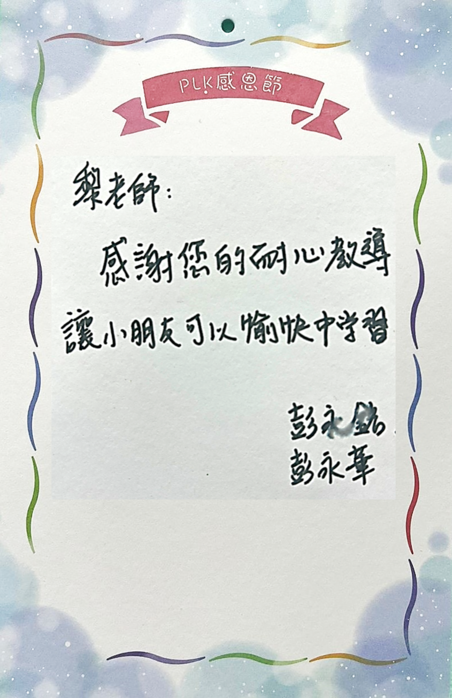 PLK感恩節
黎老師：
感謝您的耐心教導
讓小朋友可以愉快中学習
彭永
彭永華